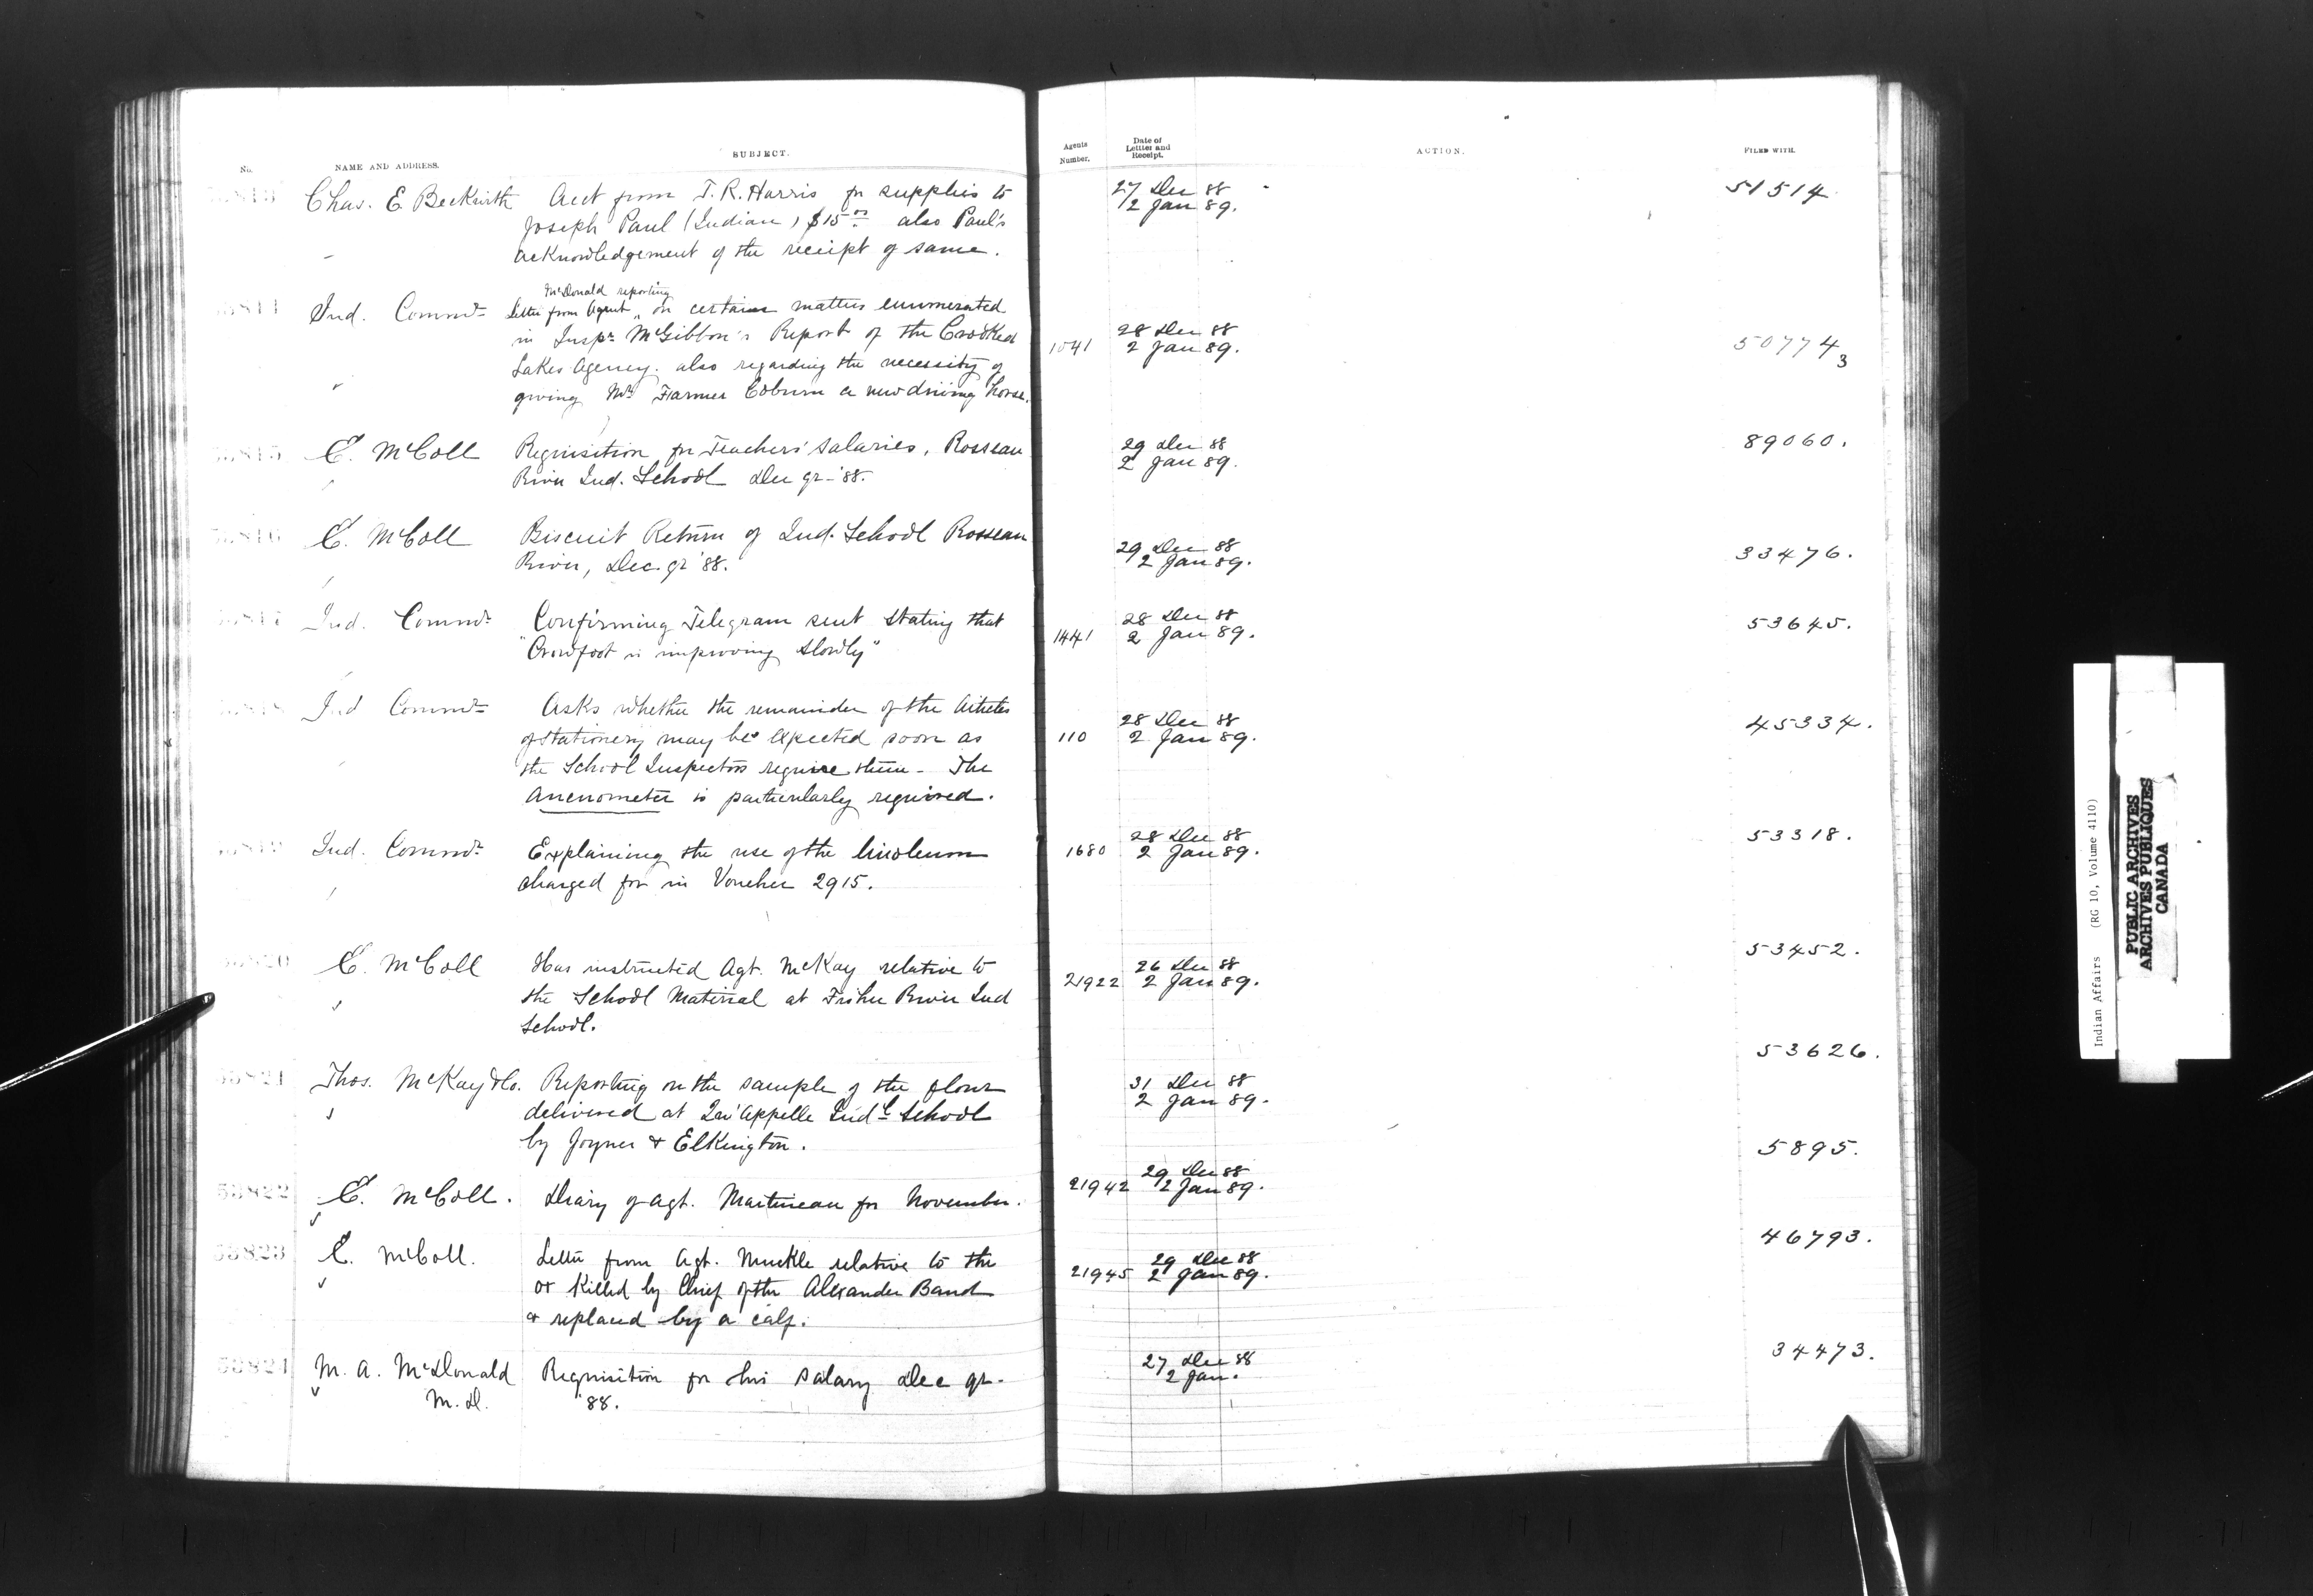 No. NAME AND ADDRESS. SUBJECT. Agents Number. Date of Letter and Receipt. ACTION. FILED WITH.
53813 Chas. E. Beckwith Acct from T. R. Harris for supplies to 27 Dec 88 51514
Joseph Paul (Indian) $15.00 also Paul's 2 Jan 89.
acknowledgement of the receipt of same.
53814 Ind. Commr Letter from Agent McDonald reporting on certain matters enumerated
in Inspr McGibbon's Report of the Crooked 1041 28 Dec 88 50774
Lakes Agency. also regarding the necessity of 2 Jan 89. 3
giving Mr Farmer Coburn a new driving horse.
53815 E. McColl Requisition for Teachers' salaries, Rosseau 29 Dec 88 89060.
River Ind. School Dec qr - '88. 2 Jan 89.
53816 E. McColl Biscuit Return of Ind. School Rosseau 29 Dec 88 33476.
River, Dec. qr '88. 2 Jan 89.
53817 Ind. Commr Confirming Telegram sent stating that 28 Dec 88 53645.
"Crowfoot is improving slowly" 1441 2 Jan 89.
53818 Ind Commr Asks whether the remainder of the articles 28 Dec 88 45334.
of stationery may be expected soon as 110 2 Jan 89.
the School Inspectors require them - The
Anenometer is particularly required.
53819 Ind. Commr Explaining the use of the linoleum 28 Dec 88 53318.
charged for in Voucher 2915. 1680 2 Jan 89.
53820 E. McColl Has instructed Agt. McKay relative to 26 Dec 88 53452.
the School Material at Fisher River Ind 21922 2 Jan 89.
School.
53821 Thos. McKay & Co. Reporting on the sample of the flour 31 Dec 88 53626.
delivered at Qu'Appelle Indl School 2 Jan 89.
by Joyner & Elkington.
53822 E. McColl. Diary of Agt. Martineau for November. 21942 29 Dec 88 5895.
2 Jan 89.
53823 E. McColl. Letter from Agt. Muckle relative to the 29 Dec 88 46793.
ox killed by Chief of the Alexander Band 21945 2 Jan 89.
& replaced by a calf.
53824 M. A. McDonald Requisition for his salary Dec qr. 27 Dec 88 34473.
M.D. '88. 2 Jan.
Indian Affairs (RG 10, Volume 4110)
PUBLIC ARCHIVES
ARCHIVES PUBLIQUES
CANADA